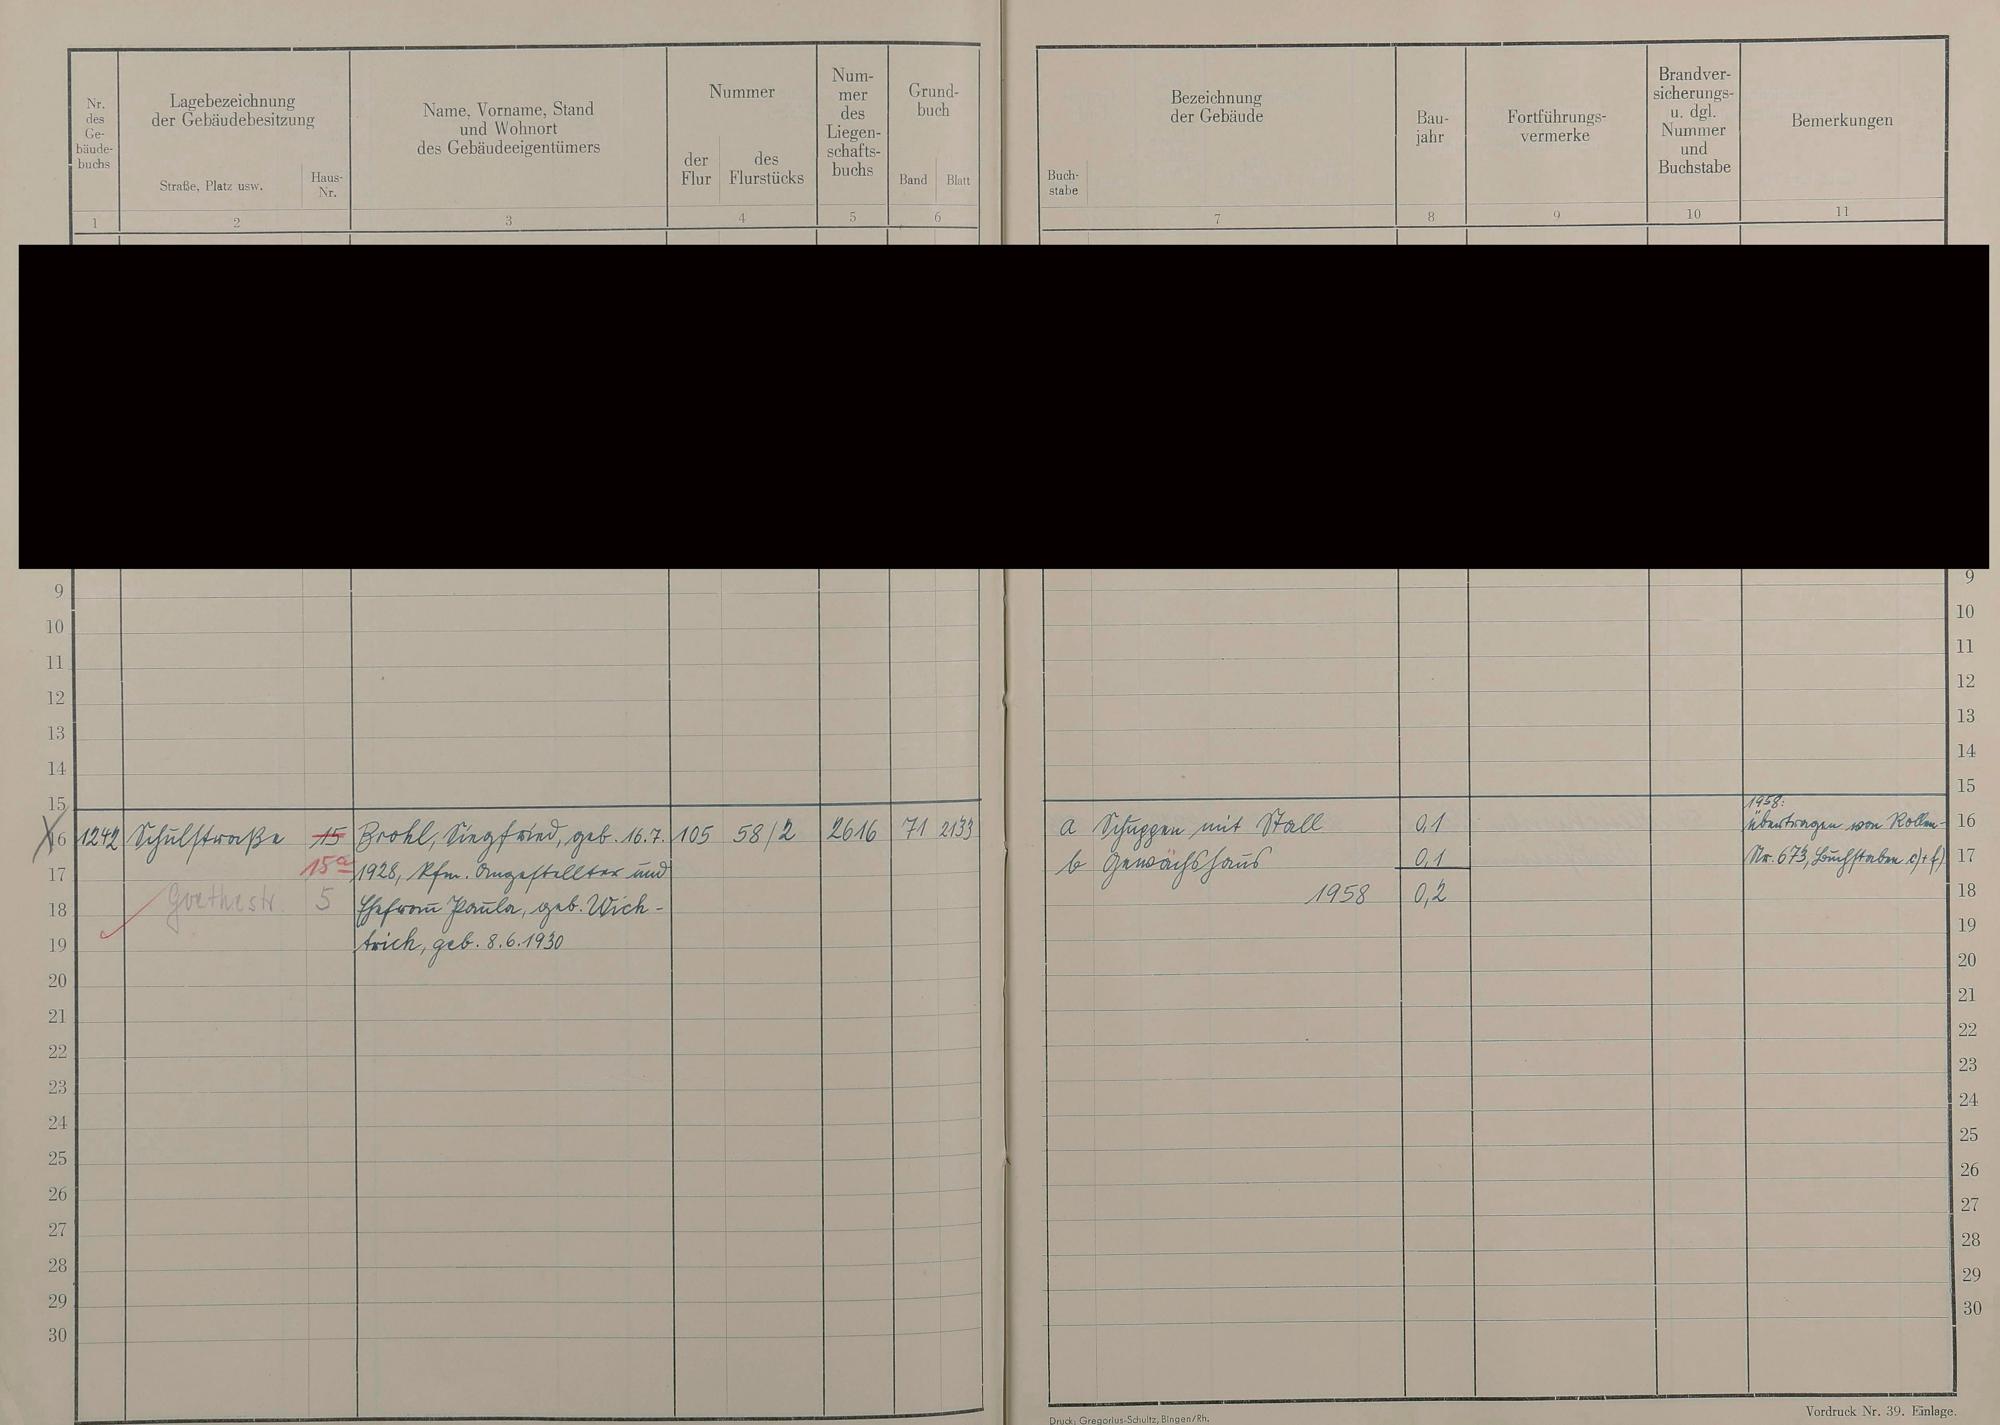 Nr. des Ge- bäude- buchs
Lagebezeichnung der Gebäudebesitzung
Straße, Platz usw.
Haus- Nr.
Name, Vorname, Stand und Wohnort des Gebäudeeigentümers
Nummer
der Flur
des Flurstücks
Num- mer des Liegen- schafts- buchs
Grund- buch
Band
Blatt
1 2 3 4 5 6
Buch- stabe
Bezeichnung der Gebäude
Bau- jahr
Fortführungs- vermerke
Brandver- sicherungs- u. dgl. Nummer und Buchstabe
Bemerkungen
7 8 9 10 11
9
10
11
12
13
14
15
16 1242 Schulstraße 15 Brohl, Siegfried, geb. 16.7. 105 58/2 2616 71 2133
17 15a 1928, Kfm. Angestellter und
18 Goethestr. 5 Ehefrau Paula, geb. Wich-
19 trich, geb. 8.6.1930
20
21
22
23
24
25
26
27
28
29
30
9
10
11
12
13
14
15
1958:
a Schuppen mit Stall 0,1 übertragen von Rollen- 16
b Gewächshaus 0,1 Nr. 673, Buchstaben c)+f) 17
1958 0,2 18
19
20
21
22
23
24
25
26
27
28
29
30
Druck: Gregorius-Schultz, Bingen/Rh.
Vordruck Nr. 39. Einlage.